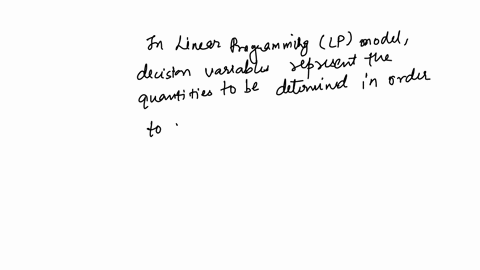 In Linear Programming (LP) model,
decision variables represent the
quantities to be determined in order
to .